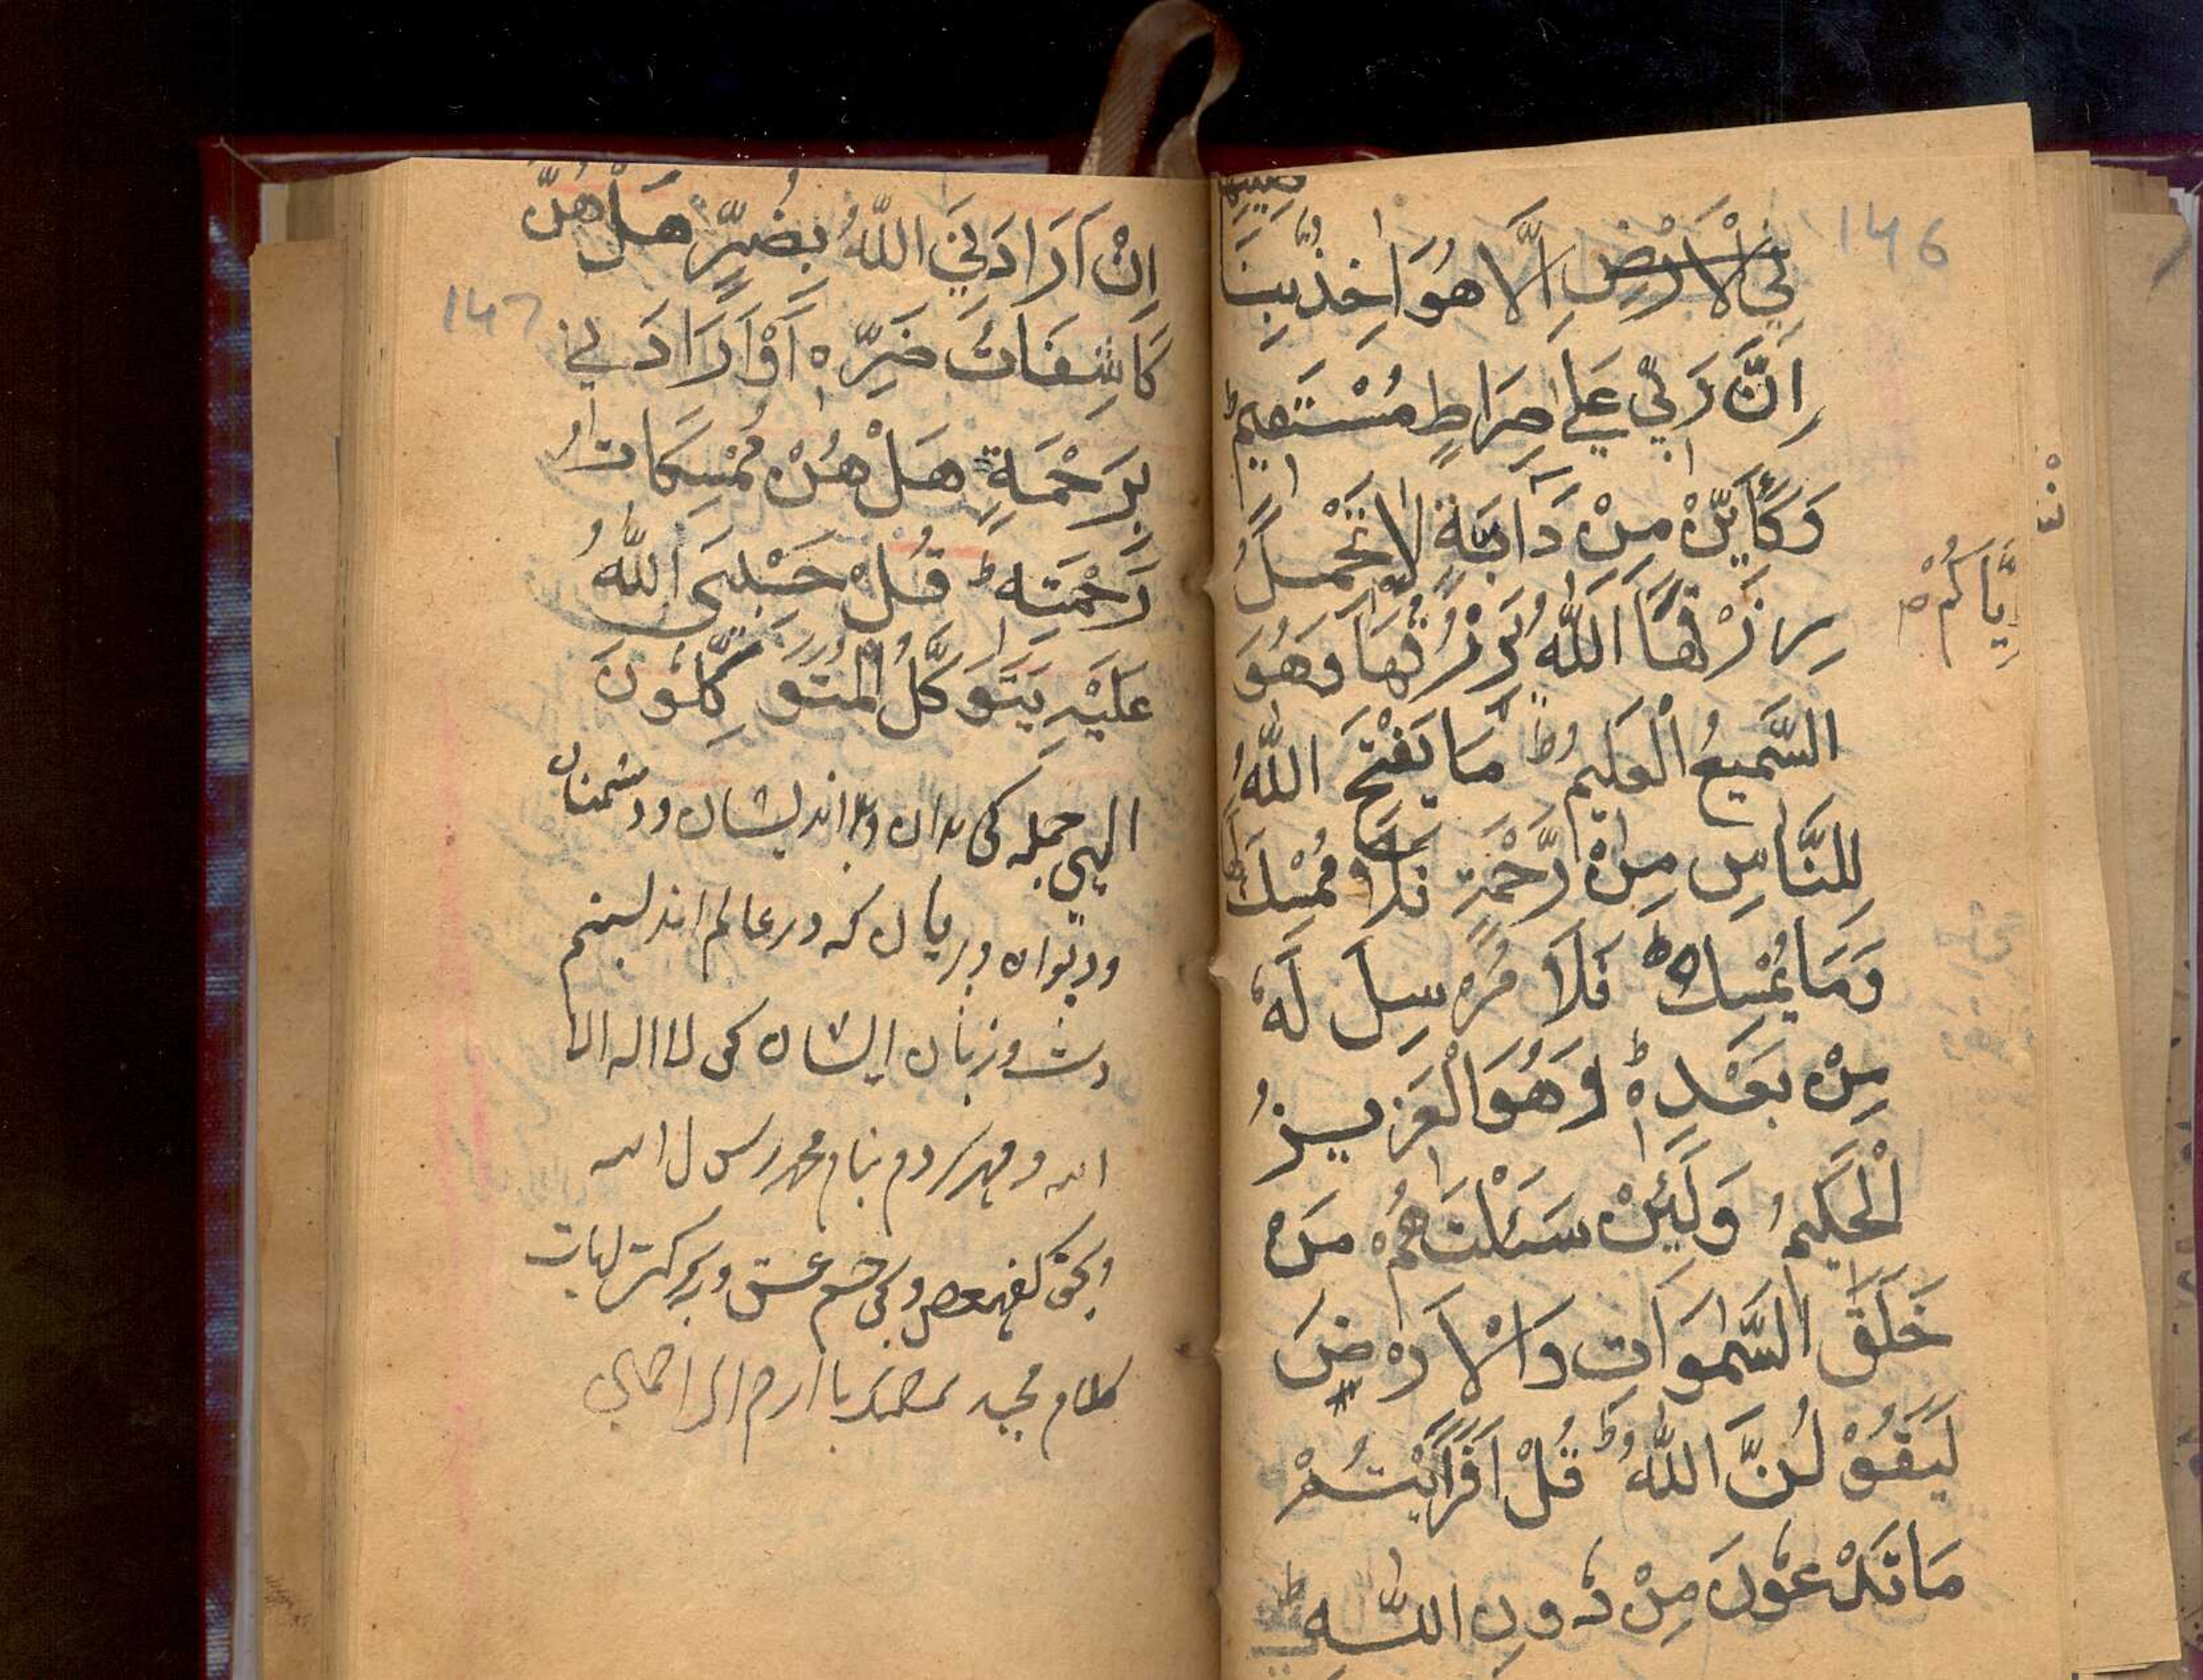 146
في الارض اِلَّا هُوَ اٰخِذٌۢ بِنَا
صِيَتِهَا
اِنَّ رَبِّي عَلٰي صِرَاطٍ مُسْتَقِيمٍ ط
وَكَاَيِّنْ مِنْ دَابَّةٍ لَا تَحْمِلُ
رِزْقَهَا اَللّٰهُ يَرْزُقُهَا وَ
اِيَّاكُمْ
وَهُوَ
السَّمِيعُ الْعَلِيمُ ط مَا يَفْتَحِ اللّٰهُ
لِلنَّاسِ مِنْ رَّحْمَةٍ فَلَا مُمْسِكَ لَهَا
وَمَا يُمْسِكْ ط فَلَا مُرْسِلَ لَهٗ
مِنْ بَعْدِهٖ ط وَهُوَ الْعَزِيزُ
الْحَكِيمُ وَلَئِنْ سَئَلْتَهُمْ مَنْ
خَلَقَ السَّمٰوَاتِ وَالْاَرْضَ
لَيَقُوْلُنَّ اللّٰهُ ط قُلْ اَفَرَاَيْتُمْ
مَا تَدْعُوْنَ مِنْ دُوْنِ اللّٰهِ ط
147
اِنْ اَرَادَنِيَ اللّٰهُ بِضُرٍّ هَلْ هُنَّ
كَاشِفَاتُ ضُرِّهٖ اَوْ اَرَادَنِي
بِرَحْمَةٍ هَلْ هُنَّ مُمْسِكَاتُ
رَحْمَتِهٖ ط قُلْ حَسْبِيَ اللّٰهُ
عَلَيْهِ يَتَوَكَّلُ الْمُتَوَكِّلُوْنَ
الهي جمله بدان وبد انديشان ودشمنان
وديوان وپريان كه در عالم اند بستم
وزبان ايشان بحق لا اله الا
الله ومهر كردم بنام محمد رسول الله
وبحق كهيعص وبحق حم عسق وببركت ايات
كلام مجيد